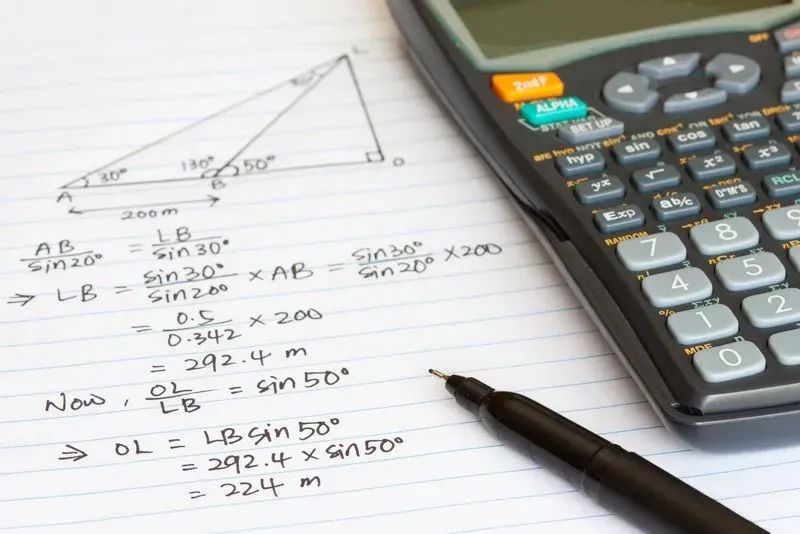 L
20°
30°
130°
50°
A
B
O
200m
AB/sin20° = LB/sin30°
⇒ LB = sin30°/sin20° × AB = sin30°/sin20° × 200
= 0.5/0.342 × 200
= 292.4 m
Now, OL/LB = sin 50°
⇒ OL = LB sin 50°
= 292.4 × sin 50°
= 224 m
2ndF
ALPHA
SET UP
OFF
hyp sin cos tan
arc hyp
yˣ √ x² x³
Exp ab/c D°M'S RCL
RANDOM
7 8 9
4 5
1 2
0
MDF